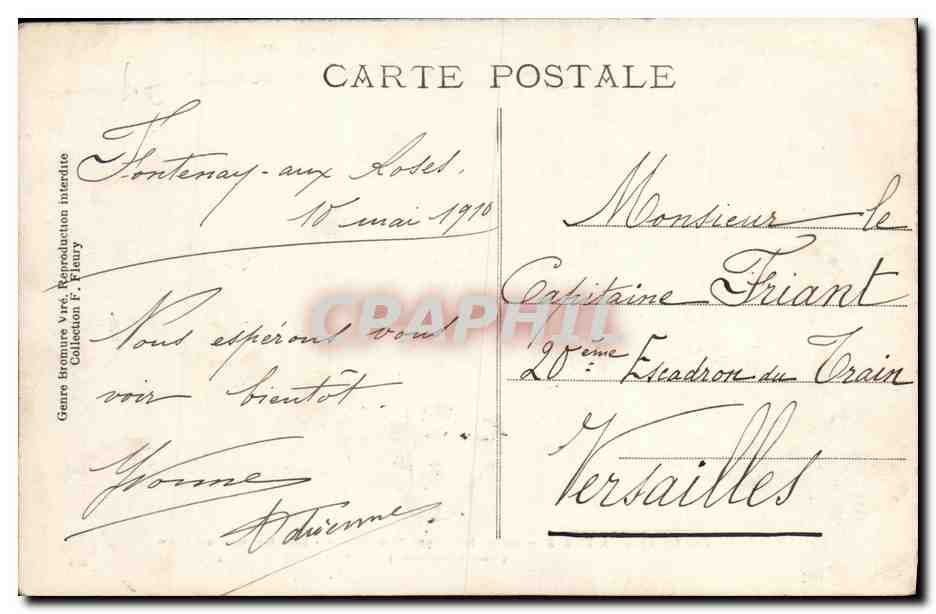 CARTE POSTALE
Fontenay-aux Roses.
10 mai 1910
Nous espérons vous
voir bientôt.
Yvonne
Adrienne
Monsieur le
Capitaine Friant
20ème Escadron du Train
Versailles
Genre Bromure Viré. Reproduction interdite
Collection F. Fleury
CRAPHIL